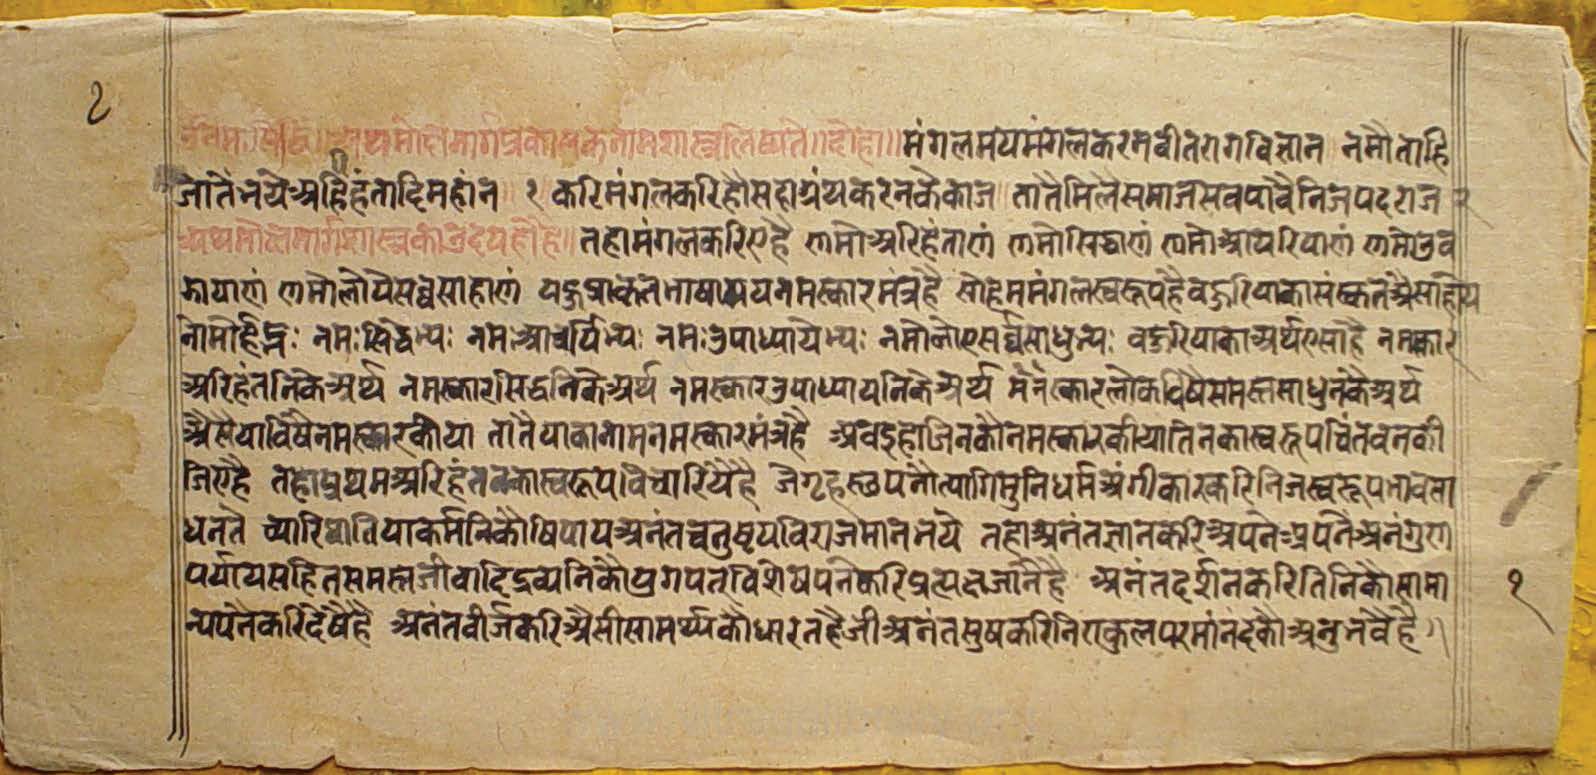 १
मंगलमयमंगलकरमवीतरागविज्ञान नमौताहि
जातैभयेअरिहंतादिमहांन १ करिमंगलकरिहौंमहाग्रंथकरनकैकाज तातैमिलैसमाजसवपावैनिजपदराज २
अथमोक्षमार्गशास्त्रकोउदयहोहै॥ तहामंगलकरिएहै णमोअरिहंताणं णमोसिद्धाणं णमोआयरियाणं णमोउव
झायाणं णमोलोएसव्वसाहाणं यहुप्राकृतभाषामयनमस्कारमंत्रहै सोहममंगलस्वरूपहैवहुरियाकासंस्कृतअैसाहोय
नमः सिद्धेभ्यः नमःआचार्येभ्यः नमःउपाध्यायेभ्यः नमोलोएसर्वसाधुभ्यः वहुरियाकाअर्थएसाहै नमस्कार
अरिहंतनिकेअर्थ नमस्कारसिद्धनिकेअर्थ नमस्कारउपाध्यायनिकेअर्थ लोकविषैसमस्तसाधुनकैअर्थ
अैसैयाविषैनमस्कारकीया तातैयाकानामनमस्कारमंत्रहै अवइहाजिनकौनमस्कारकीयातिनकास्वरूपचिंतवनकी
जिएहै तहाप्रथमअरिहंतनकास्वरूपविचारियैहै जैगृहस्थपनौत्यागिमुनिधर्मअंगीकारकरिनिजस्वरूपभावसा
धनतै च्यारिघातियाकर्मनिकौषिपायअनंतचतुष्टयविराजमानभये तहाअनंतज्ञानकरिअपनैअपनैअनंगुण
पर्यायसहितसमस्तजीवादिद्रव्यनिकौयुगपत्विशेषपनैकरिप्रत्यक्षजानैहै अनंतदर्शनकरितिनिकौसामा १
न्यपनैकरिदेषैहै अनंतवीर्जकरिअैसीसामर्थ्यकौधारतहैजीअनंतसुषकरिनिराकुलपरमांनंदकौअनुभवैहै